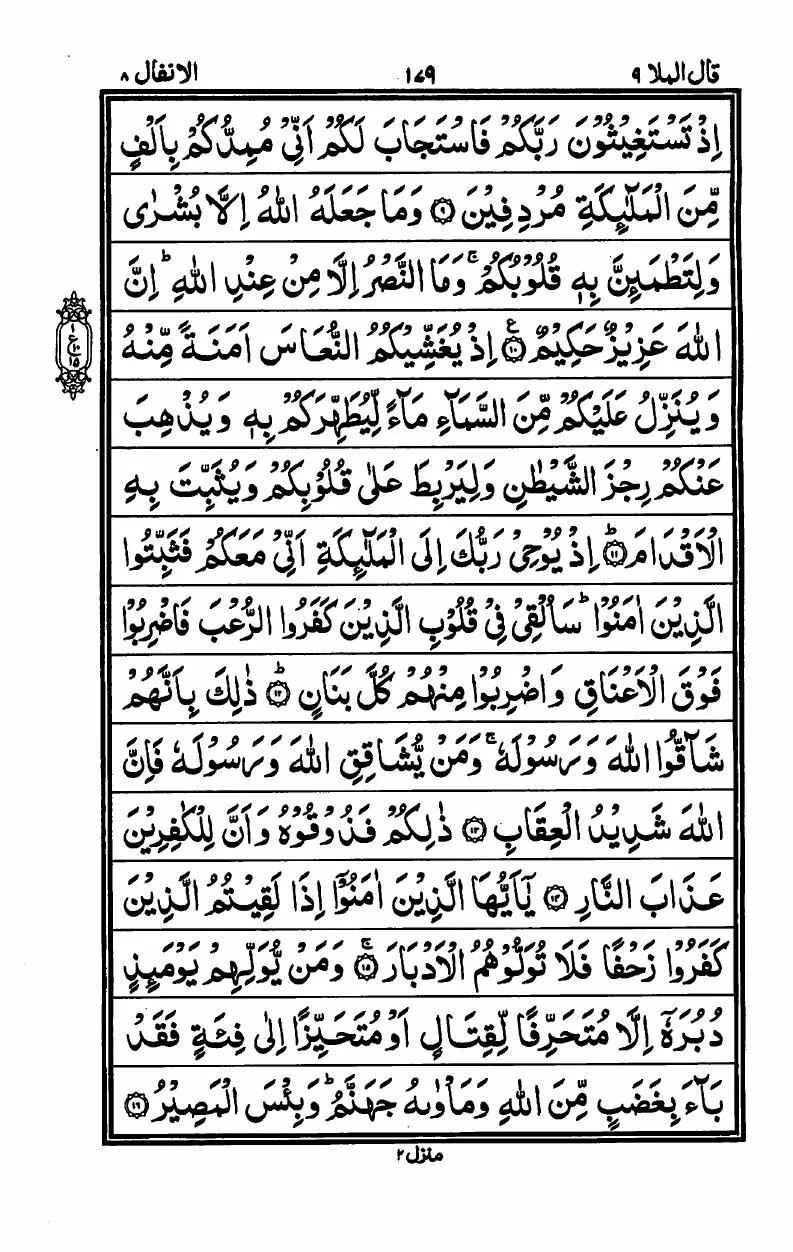 قال الملا ٩ ١٧٩ الانفال ٨
اِذْ تَسْتَغِيْثُوْنَ رَبَّكُمْ فَاسْتَجَابَ لَكُمْ اَنِّيْ مُمِدُّكُمْ بِاَلْفٍ
مِّنَ الْمَلٰٓئِكَةِ مُرْدِفِيْنَ ۝٩ وَمَا جَعَلَهُ اللّٰهُ اِلَّا بُشْرٰى
وَلِتَطْمَئِنَّ بِهٖ قُلُوْبُكُمْ ۚ وَمَا النَّصْرُ اِلَّا مِنْ عِنْدِ اللّٰهِ ؕ اِنَّ
اللّٰهَ عَزِيْزٌ حَكِيْمٌ ۝١٠ ع اِذْ يُغَشِّيْكُمُ النُّعَاسَ اَمَنَةً مِّنْهُ
ع ١ ١٠ ١٥
وَيُنَزِّلُ عَلَيْكُمْ مِّنَ السَّمَآءِ مَآءً لِّيُطَهِّرَكُمْ بِهٖ وَيُذْهِبَ
عَنْكُمْ رِجْزَ الشَّيْطٰنِ وَلِيَرْبِطَ عَلٰى قُلُوْبِكُمْ وَيُثَبِّتَ بِهِ
الْاَقْدَامَ ؕ۝١١ اِذْ يُوْحِيْ رَبُّكَ اِلَى الْمَلٰٓئِكَةِ اَنِّيْ مَعَكُمْ فَثَبِّتُوا
الَّذِيْنَ اٰمَنُوْا ؕ سَاُلْقِيْ فِيْ قُلُوْبِ الَّذِيْنَ كَفَرُوا الرُّعْبَ فَاضْرِبُوْا
فَوْقَ الْاَعْنَاقِ وَاضْرِبُوْا مِنْهُمْ كُلَّ بَنَانٍ ؕ۝١٢ ذٰلِكَ بِاَنَّهُمْ
شَآقُّوا اللّٰهَ وَرَسُوْلَهٗ ۚ وَمَنْ يُّشَاقِقِ اللّٰهَ وَرَسُوْلَهٗ فَاِنَّ
اللّٰهَ شَدِيْدُ الْعِقَابِ ۝١٣ ذٰلِكُمْ فَذُوْقُوْهُ وَاَنَّ لِلْكٰفِرِيْنَ
عَذَابَ النَّارِ ۝١٤ يٰٓاَيُّهَا الَّذِيْنَ اٰمَنُوْٓا اِذَا لَقِيْتُمُ الَّذِيْنَ
كَفَرُوْا زَحْفًا فَلَا تُوَلُّوْهُمُ الْاَدْبَارَ ۚ۝١٥ وَمَنْ يُّوَلِّهِمْ يَوْمَئِذٍ
دُبُرَهٗٓ اِلَّا مُتَحَرِّفًا لِّقِتَالٍ اَوْ مُتَحَيِّزًا اِلٰى فِئَةٍ فَقَدْ
بَآءَ بِغَضَبٍ مِّنَ اللّٰهِ وَمَاْوٰىهُ جَهَنَّمُ ؕ وَبِئْسَ الْمَصِيْرُ ۝١٦
منزل ٢